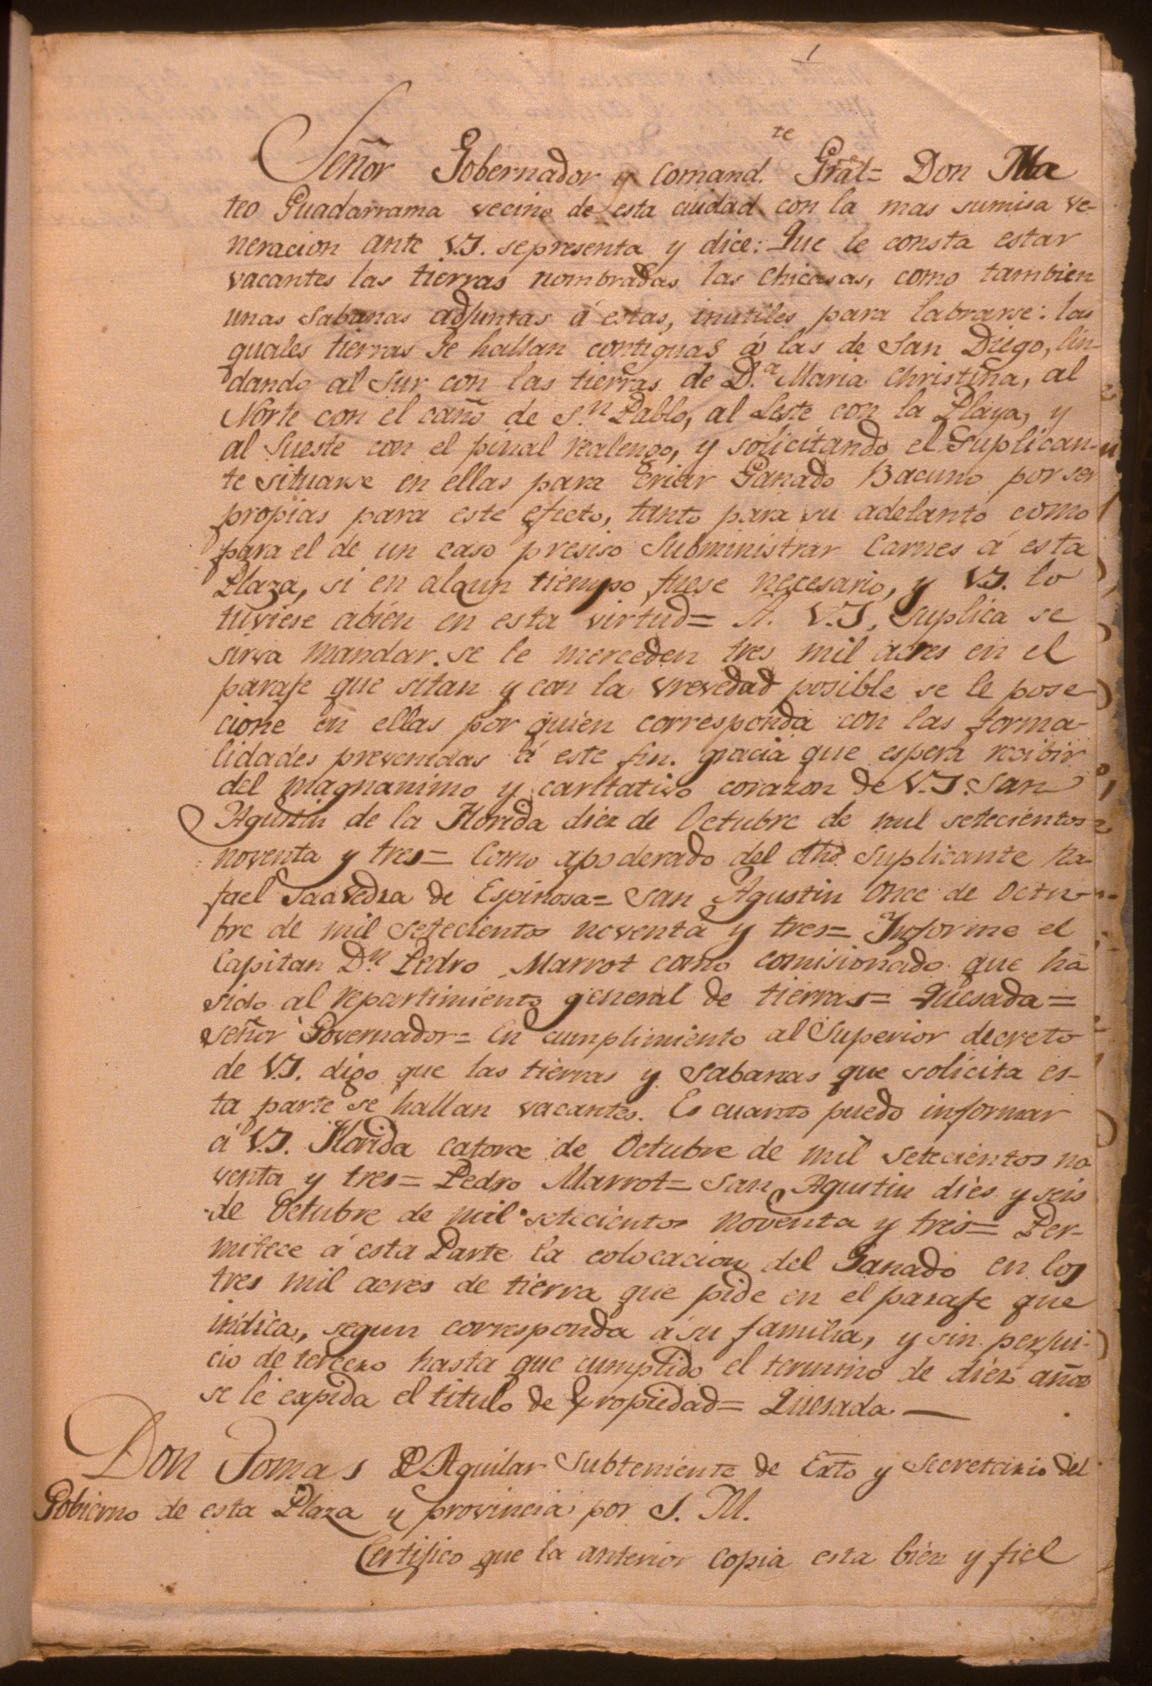 1
Señor Gobernador y Comand.te Gräl= Don Ma
teo Guadarrama vecino de esta ciudad con la mas sumisa ve-
neracion ante V.S. sepresenta y dice: Que le consta estar
vacantes las tierras nombradas las Chicasas, como tambien
unas Sabanas adjuntas á estas, inutiles para labrarse: las
quales tierras se hallan contiguas á las de San Diego, lin-
dando al Sur con las tierras de D.a Maria Christina, al
Norte con el caño de S.n Pablo, al Leste con la Playa, y
al Sueste con el pinal realengo, y solicitando el Suplican-
te situarse en ellas para Criar Ganado Bacuno por ser
propias para este efecto, tanto para su adelanto como
para el de un caso presiso Subministrar Carnes á esta
Plaza, si en algun tiempo fuese necesario, y V.S. lo
tuviese abien en esta virtud= A. V.S. Suplica se
sirva mandar. se le merceden tres mil acres en el
parage que sitan y con la vrevedad posible se le pose-
cione en ellas por quien corresponda con las forma-
lidades prevenidas á este fin. gracia que espera recibir
del magnanimo y caritativo corazon de V.S. San
Agustin de la Florida diez de Octubre de mil setecientos
noventa y tres= Como apoderado del dho. Suplicante Ra-
fael Saavedra de Espinosa= San Agustin Once de Octu-
bre de mil setecientos noventa y tres= Informe el
Capitan D.n Pedro Marrot como comisionado que ha
sido al repartimiento general de tierras= Quesada=
Señor Governador= En cumplimiento al Superior decreto
de V.S. digo que las tierras y Sabanas que solicita es-
ta parte se hallan vacantes. Es cuanto puedo informar
á V.S. Florida catorce de Octubre de mil setecientos no
venta y tres= Pedro Marrot= San Agustin dies y seis
de Octubre de mil setecientos noventa y tres= Per-
mitece á esta Parte la colocacion del Ganado en los
tres mil acres de tierra que pide en el parage que
indica, segun corresponda á su familia, y sin perjui-
cio de tercero hasta que cumplido el termino de diez años
se le expida el titulo de Propiedad= Quesada —
Don Tomas de Aguilar Subteniente de Exto y Secretario del
Gobierno de esta Plaza y provincia por S. M.
Certifico que la anterior Copia esta bien y fiel